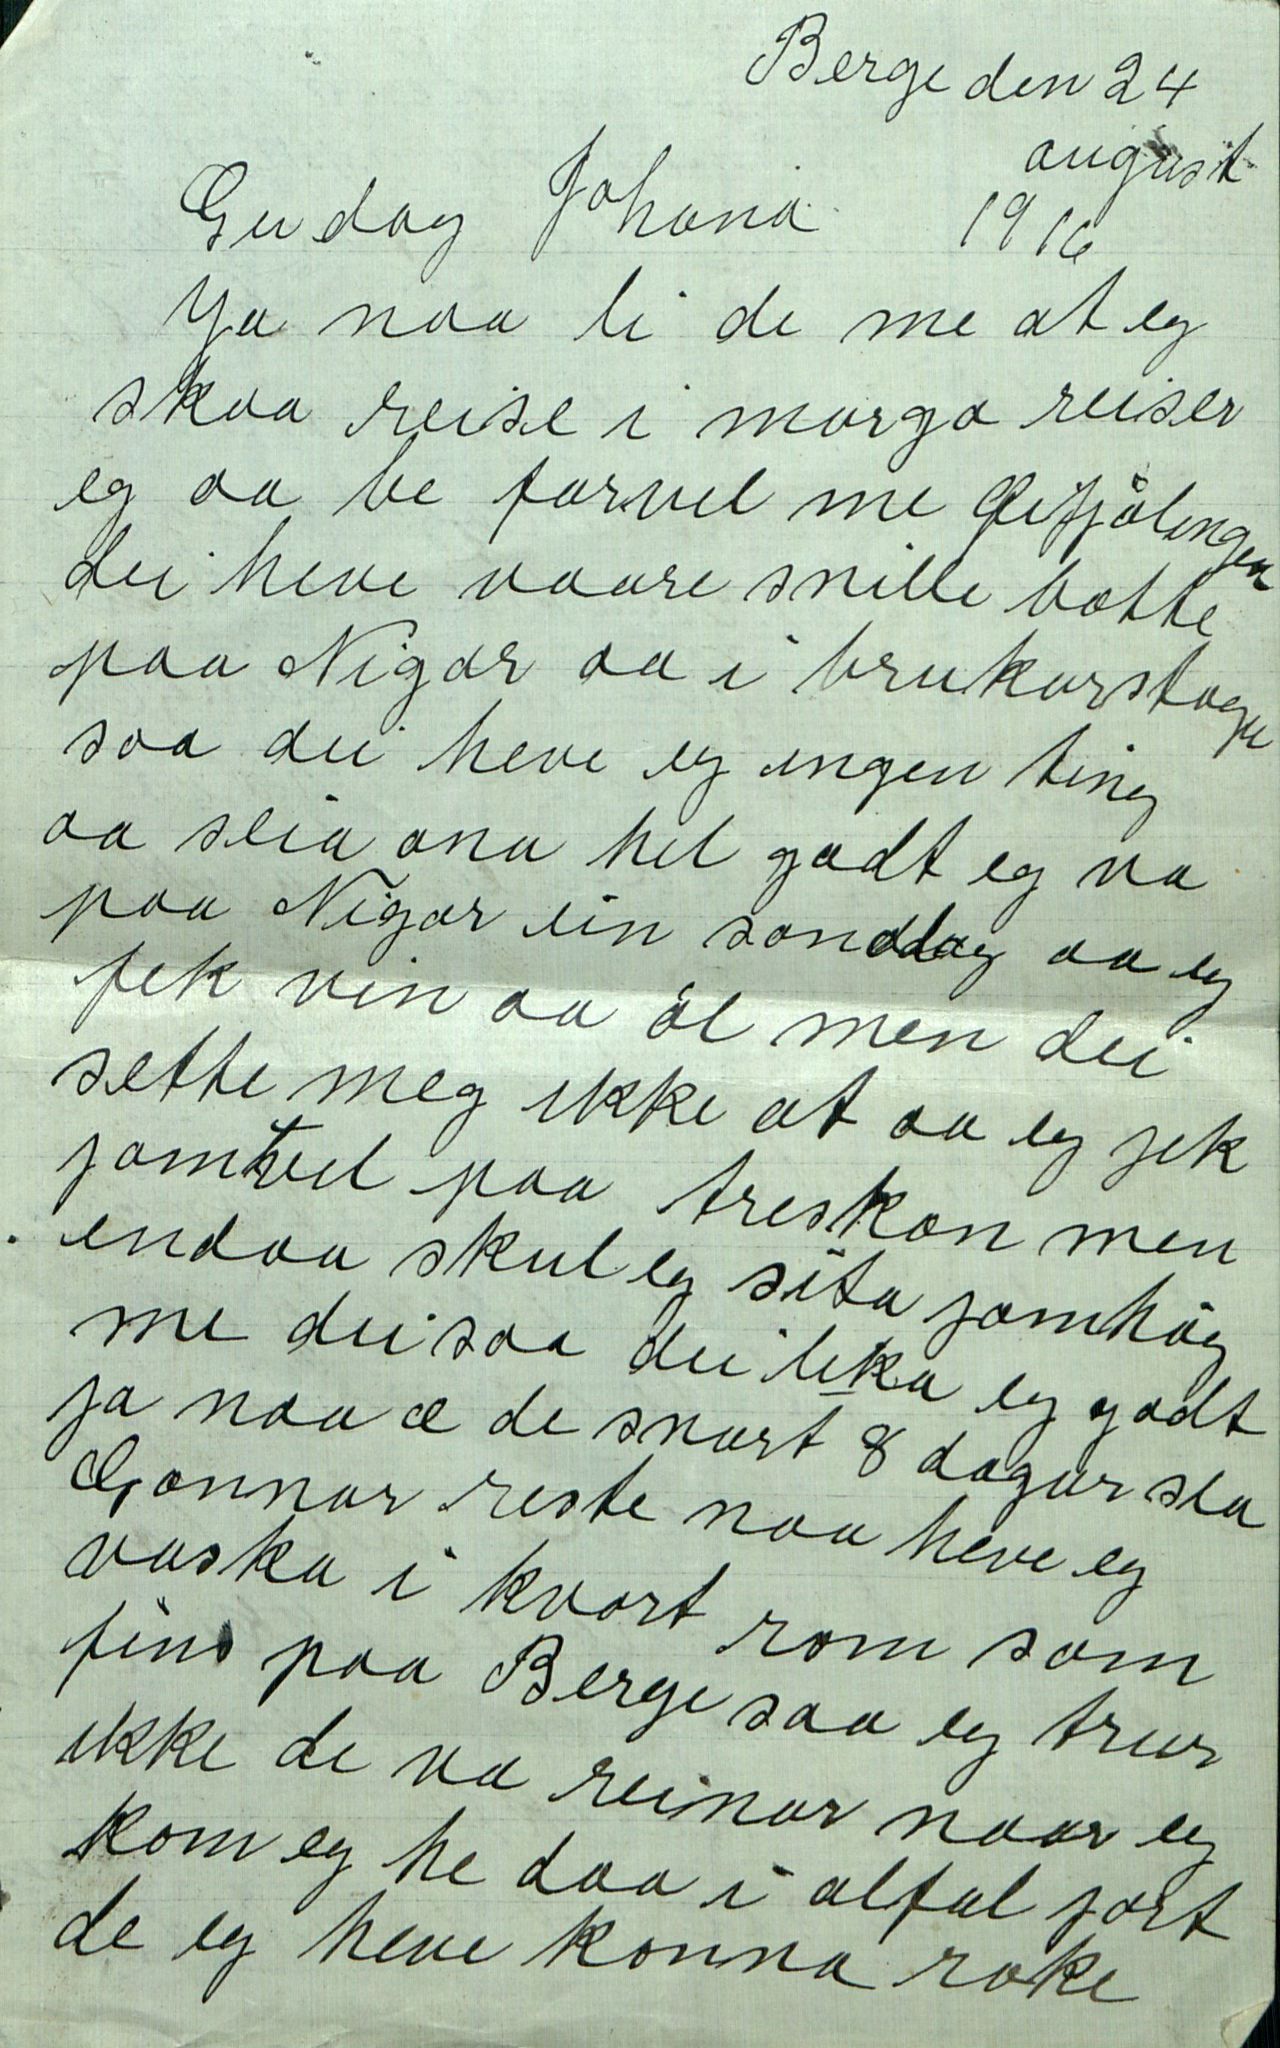 Berge den 24
august
1916
Gu dag Johana
Ja naa li de me at eg
skaa reise i morga reiser
eg aa be farvel me
dei heve vaare snille bætte
paa Nigar aa i brukarstogu
saa dei heve eg ingen ting
aa seia ana hel godt eg va
paa Nigar ein sondag aa eg
fek vin aa öl men dei
sette meg ikke at aa eg jek
jamtvel paa treskon men
endaa skul eg sita jamhög
me dei saa dei lika eg godt
ja naa æ de snart 8 dagar sia
Gonnar reste naa heve eg
vaska i kvart rom som
fins paa Berge saa eg trur
ikke de va reinar naar eg
kom eg he daa i alfal jort
de eg heve konna rake